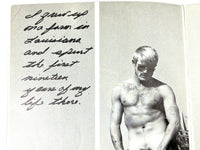 I grew up
on a farm in
Louisiana
and spent
the first
nineteen
years of my
life there.